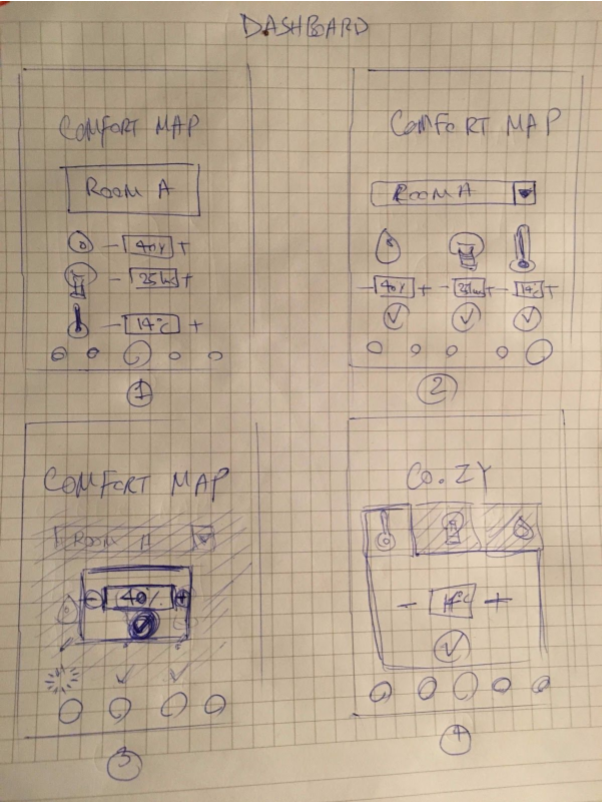 DASHBOARD
COMFORT MAP
ROOM A
- 40% +
- 35lux +
- 14°C +
1
COMFORT MAP
ROOM A
- 40% + - 35lux + - 14°C +
2
COMFORT MAP
ROOM A
- 40% +
3
CO.ZY
- 14°C +
4